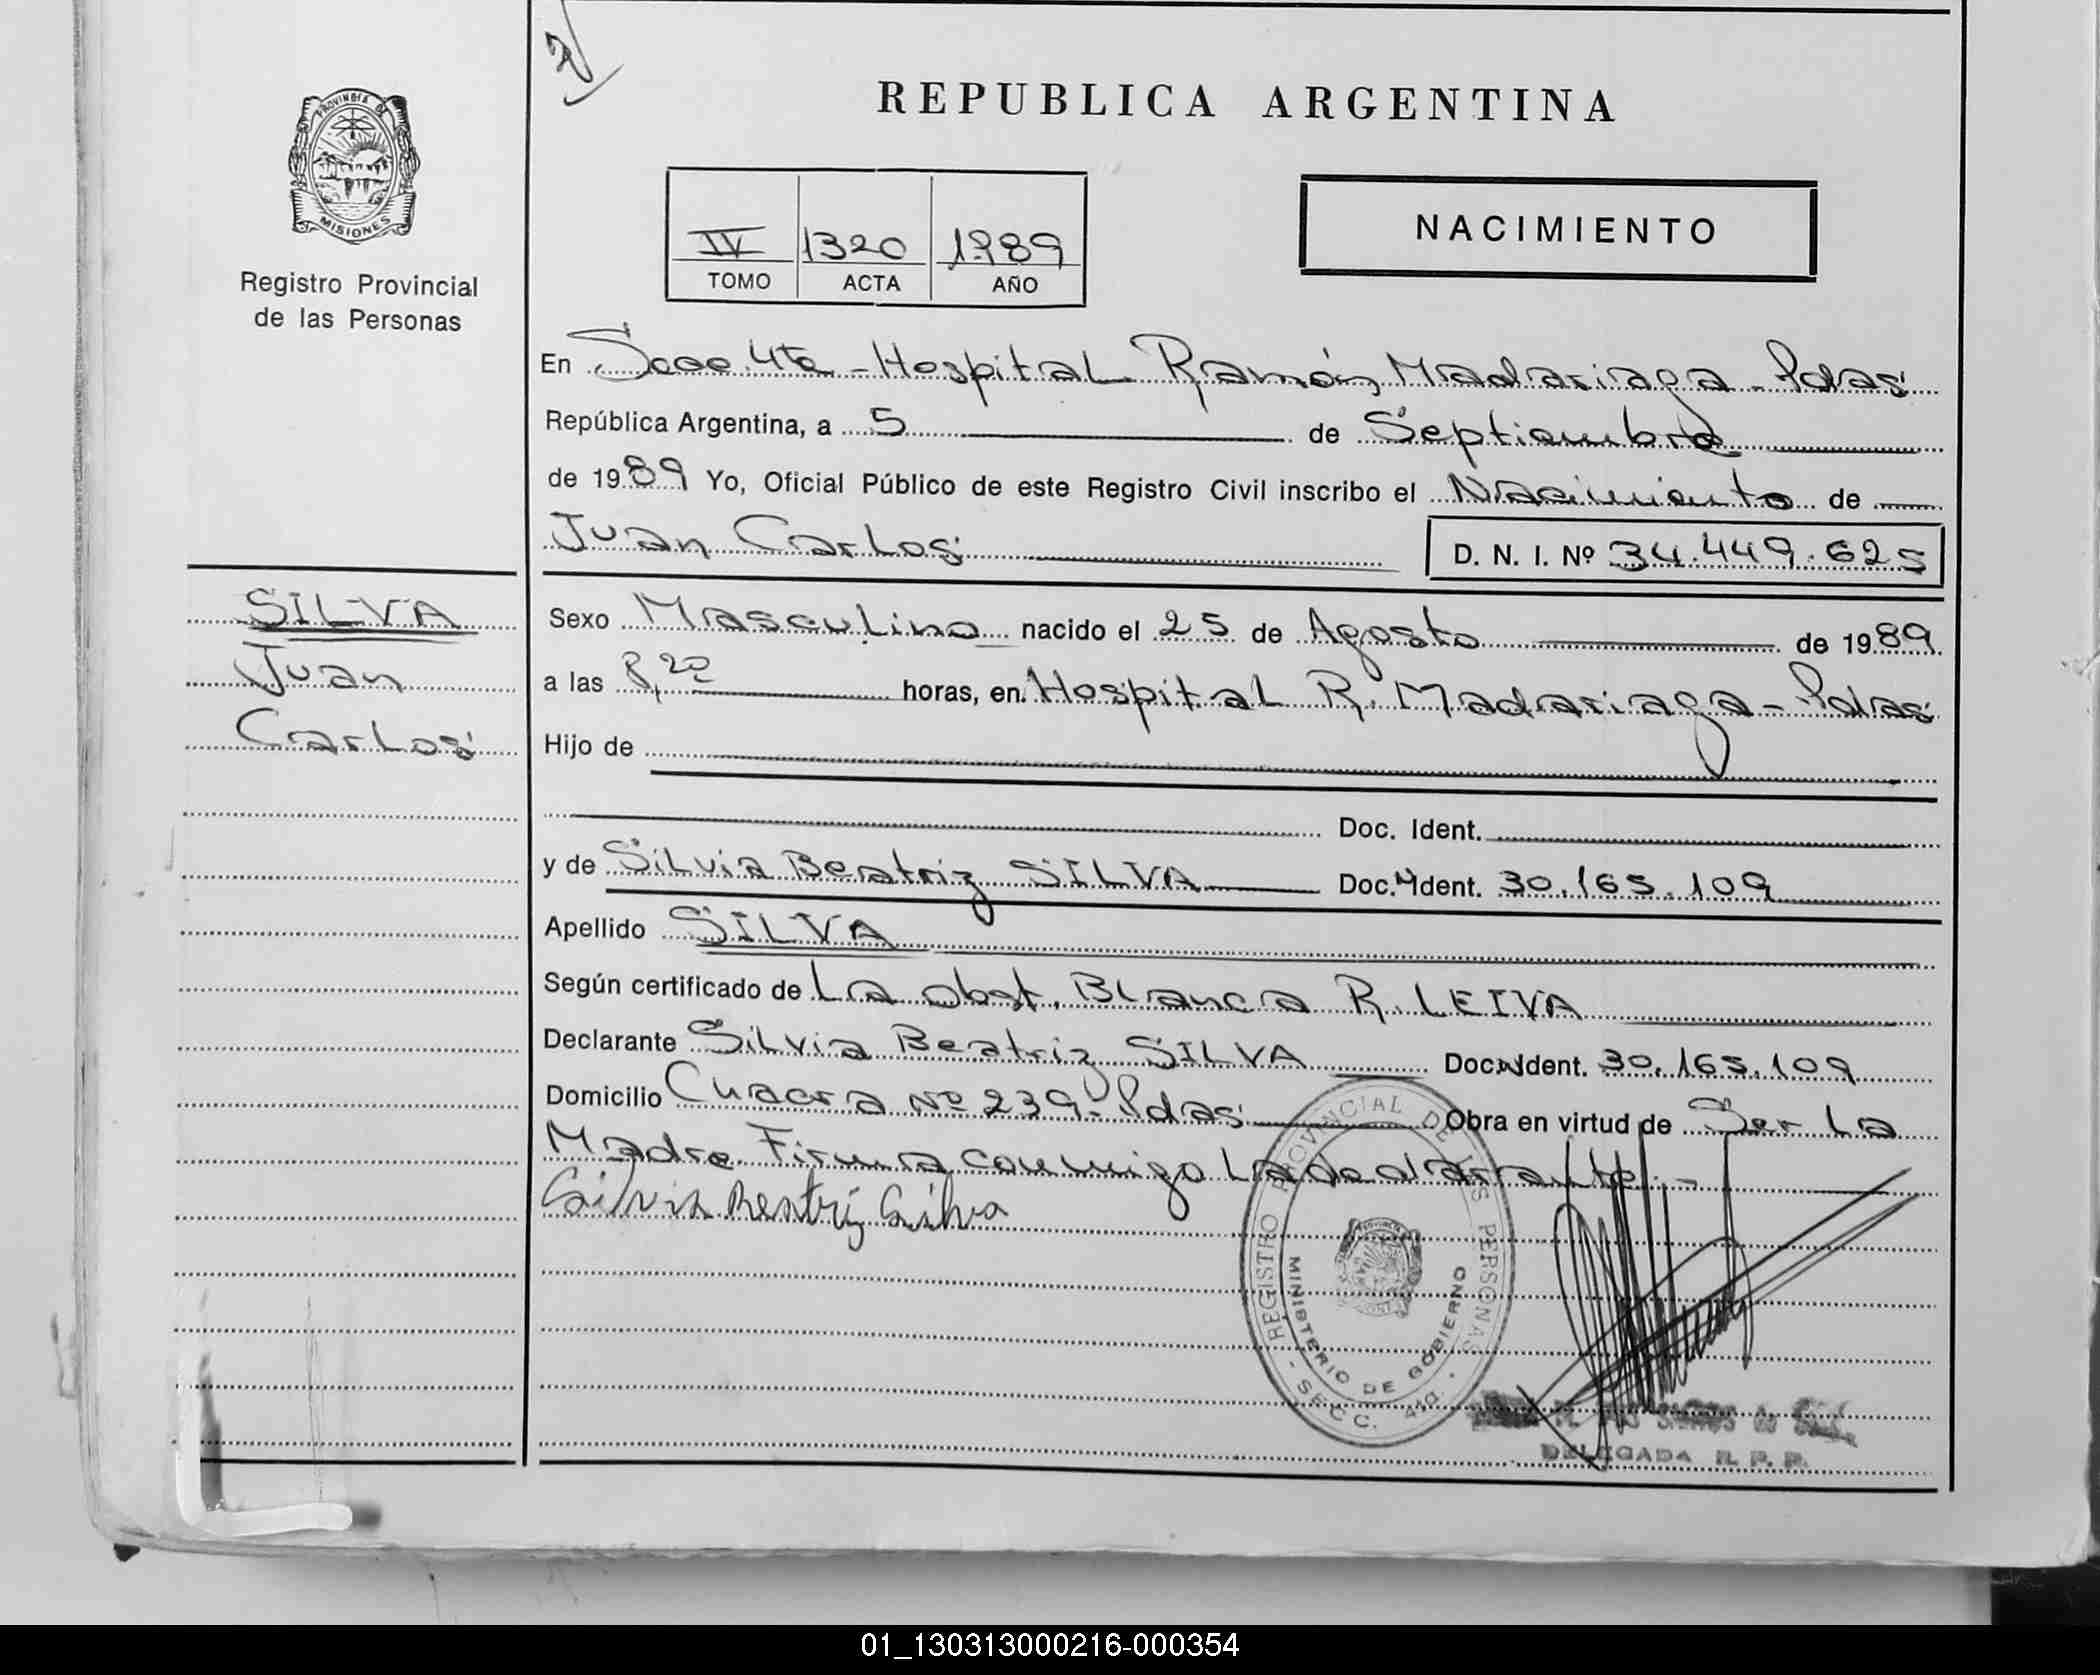 REPUBLICA ARGENTINA
PROVINCIA DE
MISIONES
Registro Provincial
de las Personas
IV 1320 1989
TOMO ACTA AÑO
NACIMIENTO
En Secc. 4ta - Hospital Ramón Madariaga - Pdas
República Argentina, a 5 de Septiembre
de 1989 Yo, Oficial Público de este Registro Civil inscribo el Nacimiento de
Juan Carlos D. N. I. Nº 34.449.625
SILVA
Juan
Carlos
Sexo Masculino nacido el 25 de Agosto de 1989
a las 8,20 horas, en Hospital R. Madariaga - Pdas
Hijo de
Doc. Ident.
y de Silvia Beatriz SILVA Doc. Ident. 30.165.109
Apellido SILVA
Según certificado de La obst. Blanca R. LEIVA
Declarante Silvia Beatriz SILVA Doc. Ident. 30.165.109
Domicilio Chacra Nº 239 - Pdas Obra en virtud de Ser La
Madre. Firma conmigo La declarante. -
Silvia Beatriz Silva
REGISTRO PROVINCIAL DE LAS PERSONAS
MINISTERIO DE GOBIERNO
- SECC. 4ta. -
DELEGADA R. P. P.
01_130313000216-000354